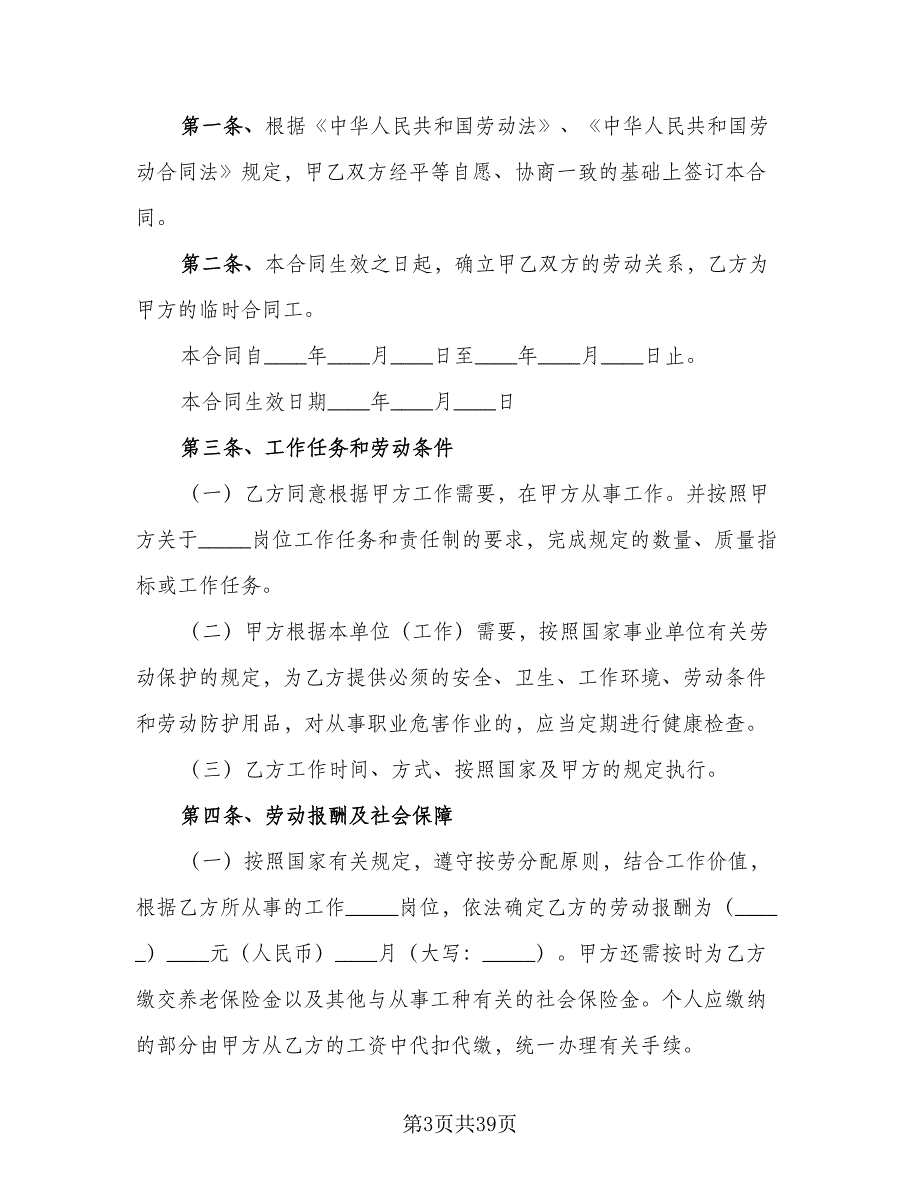 第一条、根据《中华人民共和国劳动法》、《中华人民共和国劳
动合同法》规定，甲乙双方经平等自愿、协商一致的基础上签订本合
同。
第二条、本合同生效之日起，确立甲乙双方的劳动关系，乙方为
甲方的临时合同工。
本合同自____年____月____日至____年____月____日止。
本合同生效日期____年____月____日
第三条、工作任务和劳动条件
（一）乙方同意根据甲方工作需要，在甲方从事工作。并按照甲
方关于_____岗位工作任务和责任制的要求，完成规定的数量、质量指
标或工作任务。
（二）甲方根据本单位（工作）需要，按照国家事业单位有关劳
动保护的规定，为乙方提供必须的安全、卫生、工作环境、劳动条件
和劳动防护用品，对从事职业危害作业的，应当定期进行健康检查。
（三）乙方工作时间、方式、按照国家及甲方的规定执行。
第四条、劳动报酬及社会保障
（一）按照国家有关规定，遵守按劳分配原则，结合工作价值，
根据乙方所从事的工作_____岗位，依法确定乙方的劳动报酬为（____
_）____元（人民币）____月（大写：_____）。甲方还需按时为乙方
缴交养老保险金以及其他与从事工种有关的社会保险金。个人应缴纳
的部分由甲方从乙方的工资中代扣代缴，统一办理有关手续。
第3页共39页